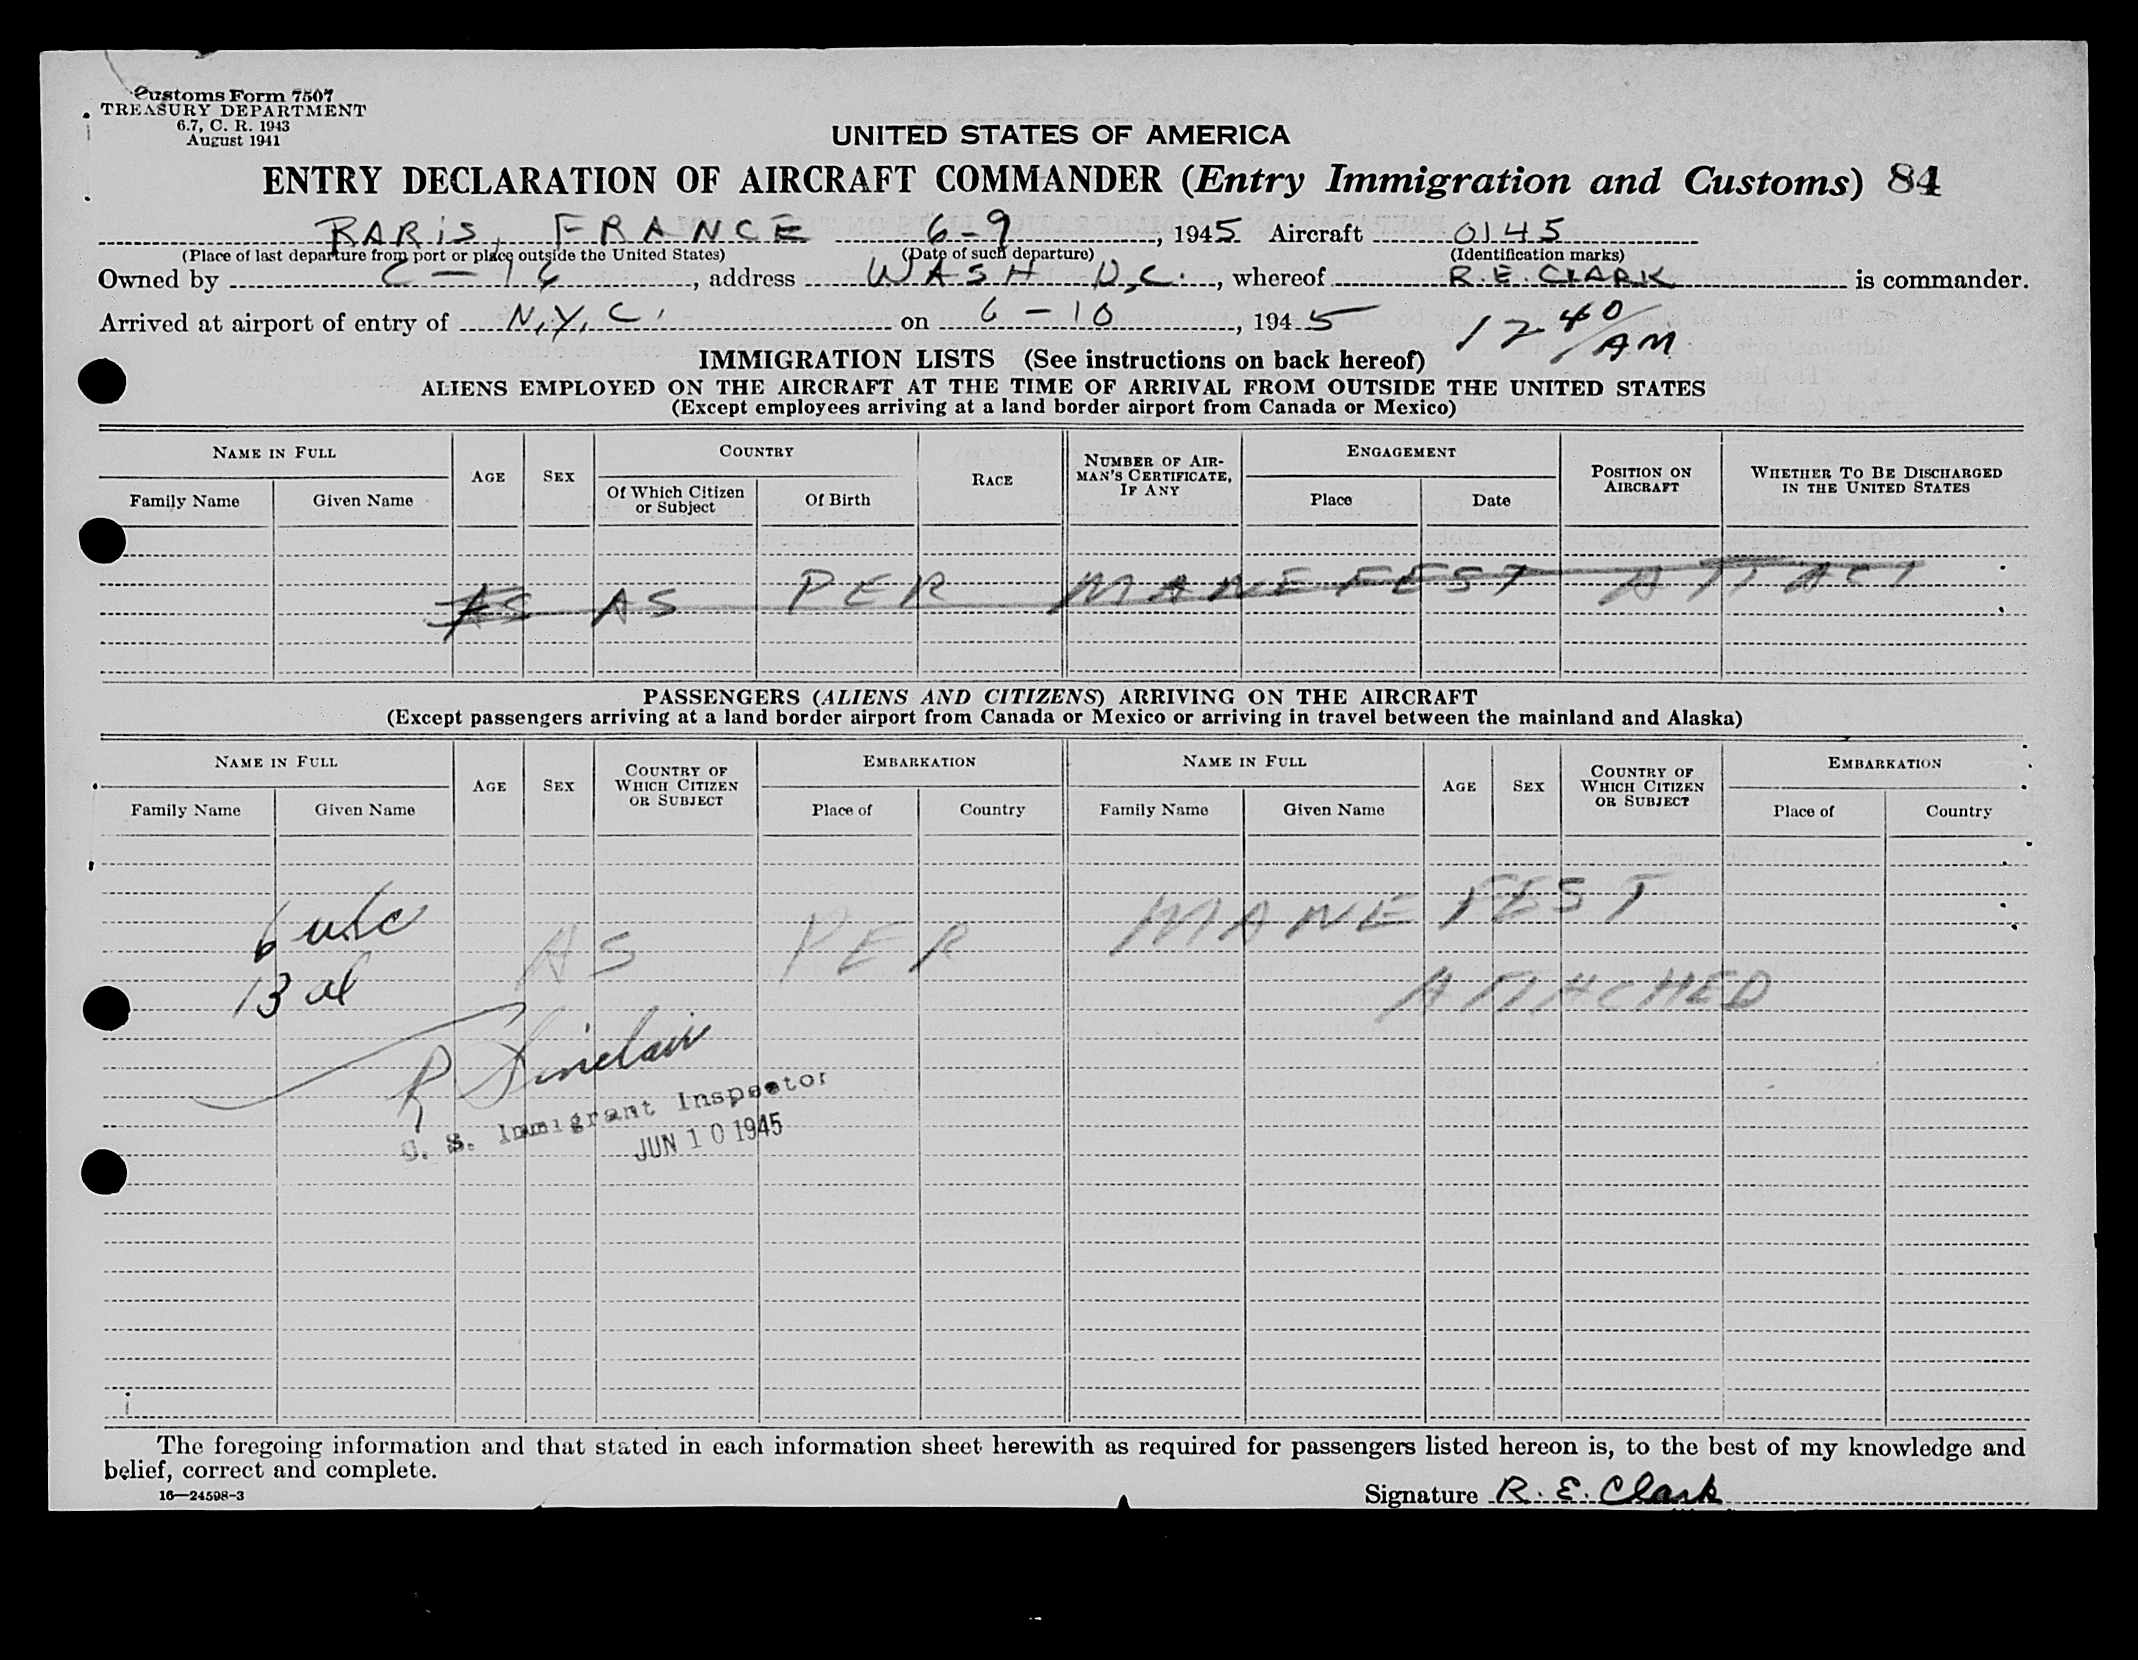 Customs Form 7507
TREASURY DEPARTMENT
6.7, C. R. 1943
August 1941
UNITED STATES OF AMERICA
ENTRY DECLARATION OF AIRCRAFT COMMANDER (Entry Immigration and Customs) 84
PARIS, FRANCE 6-9, 1945 Aircraft 0145
(Place of last departure from port or place outside the United States) (Date of such departure) (Identification marks)
Owned by C-16, address WASH D.C., whereof R.E. CLARK is commander.
Arrived at airport of entry of N.Y.C. on 6-10, 1945 12 40/AM
IMMIGRATION LISTS (See instructions on back hereof)
ALIENS EMPLOYED ON THE AIRCRAFT AT THE TIME OF ARRIVAL FROM OUTSIDE THE UNITED STATES
(Except employees arriving at a land border airport from Canada or Mexico)
NAME IN FULL AGE SEX COUNTRY RACE NUMBER OF AIRMAN'S CERTIFICATE, IF ANY ENGAGEMENT POSITION ON AIRCRAFT WHETHER TO BE DISCHARGED IN THE UNITED STATES
Family Name Given Name Of Which Citizen or Subject Of Birth Place Date
AS AS PER MANEFEST ATTACT
PASSENGERS (ALIENS AND CITIZENS) ARRIVING ON THE AIRCRAFT
(Except passengers arriving at a land border airport from Canada or Mexico or arriving in travel between the mainland and Alaska)
NAME IN FULL AGE SEX COUNTRY OF WHICH CITIZEN OR SUBJECT EMBARKATION NAME IN FULL AGE SEX COUNTRY OF WHICH CITIZEN OR SUBJECT EMBARKATION
Family Name Given Name Place of Country Family Name Given Name Place of Country
6 usc
AS PER MANEFEST
13 al
ATTACHED
R Sinclair
U. S. Immigrant Inspector
JUN 10 1945
The foregoing information and that stated in each information sheet herewith as required for passengers listed hereon is, to the best of my knowledge and
belief, correct and complete.
16—24598-3
Signature R. E. Clark